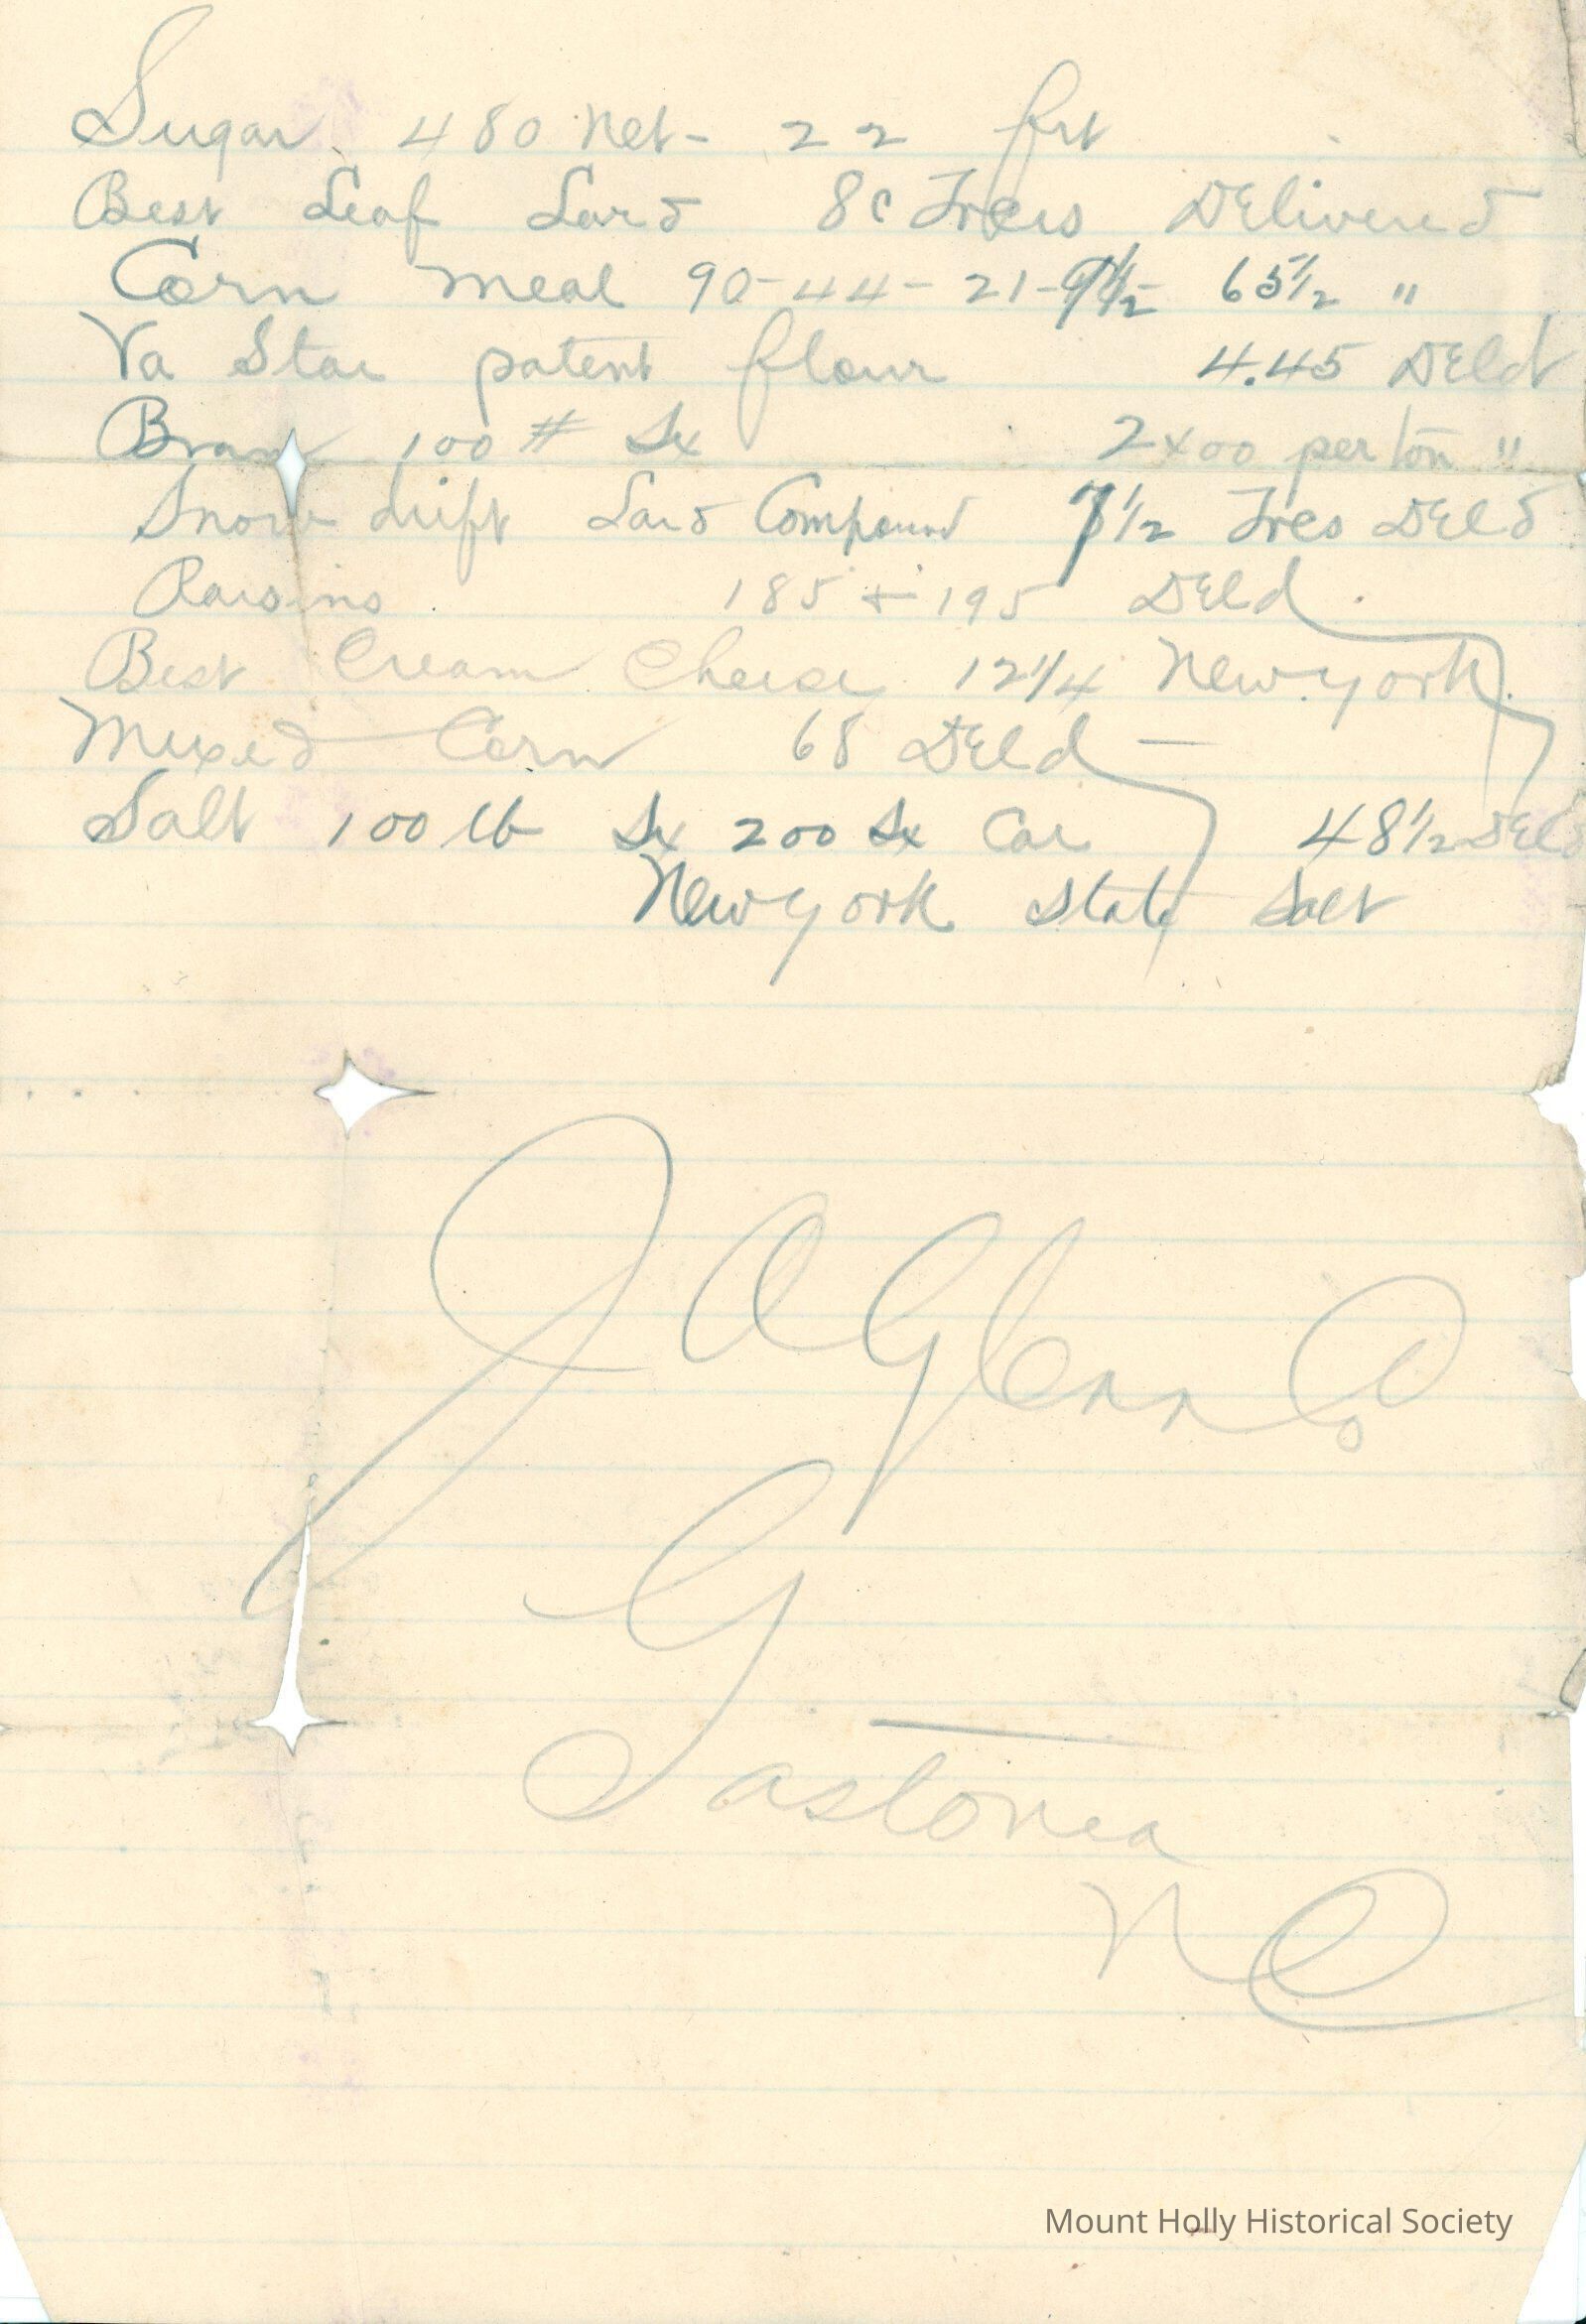 Sugar 480 Net - 22 frt
Best Leaf Lard 8c Trces Delivered
Corn Meal 90 - 44 - 21 - 65 1/2 "
Va Star patent flour 4.45 Deld
Bran 100 # Sx per ton "
Snow drift Lard Compound 7 1/2 Trces Deld
Raisins 185 + 195 Deld
Best Cream Cheese 12 1/4 New York
Mixed Corn 68 Deld -
Salt 100 lb Sx 200 Sx Car 48 1/2 Deld
New York State Salt
J A Glenn Co
Gastonia
NC
Mount Holly Historical Society